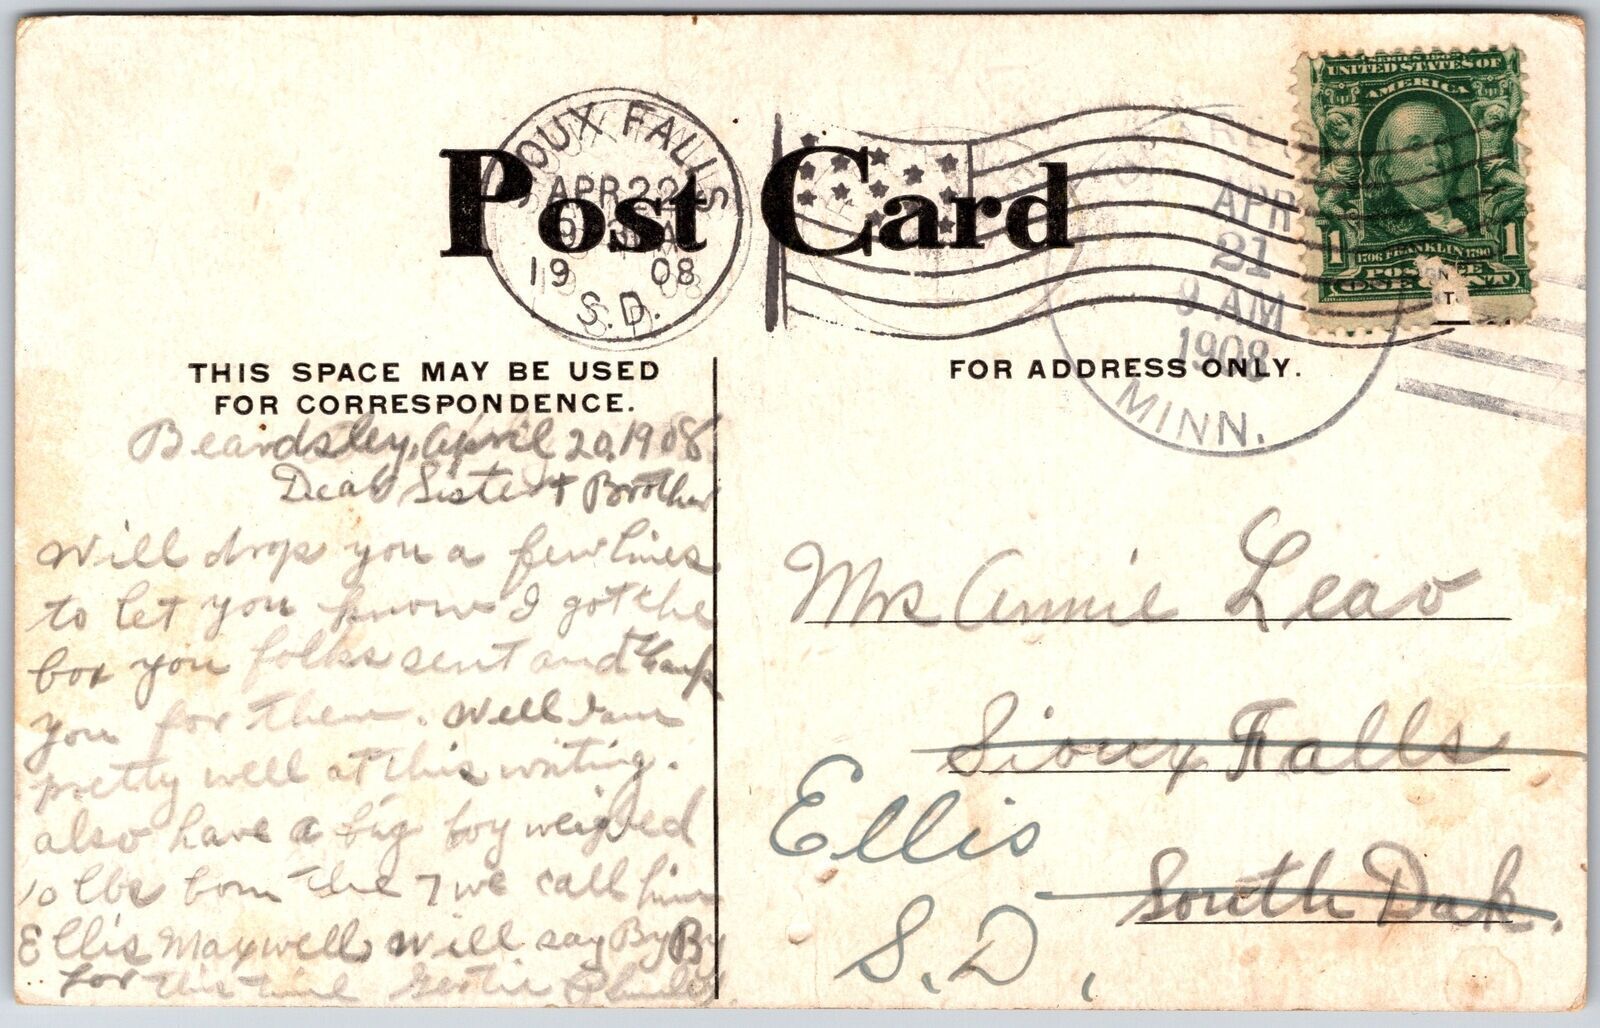 Post Card
SIOUX FALLS
APR 22
1908
S.D.
APR
21
9 AM
1908
MINN.
SERIES 1902
UNITED STATES OF
AMERICA
1 1706 FRANKLIN 1790 1
ONE CENT
THIS SPACE MAY BE USED
FOR CORRESPONDENCE.
FOR ADDRESS ONLY.
Beardsley, April 20, 1908
Dear Sister & Brother
Will drop you a few lines
to let you know I got the
box you folks sent and thank
you for them. Well I am
pretty well at this writing.
also have a big boy weighed
10 lbs born the 7 we call him
Ellis Maxwell will say By By
for this time Gertie
Mrs Annie Leao
Sioux Falls
South Dak.
Ellis
S.D.